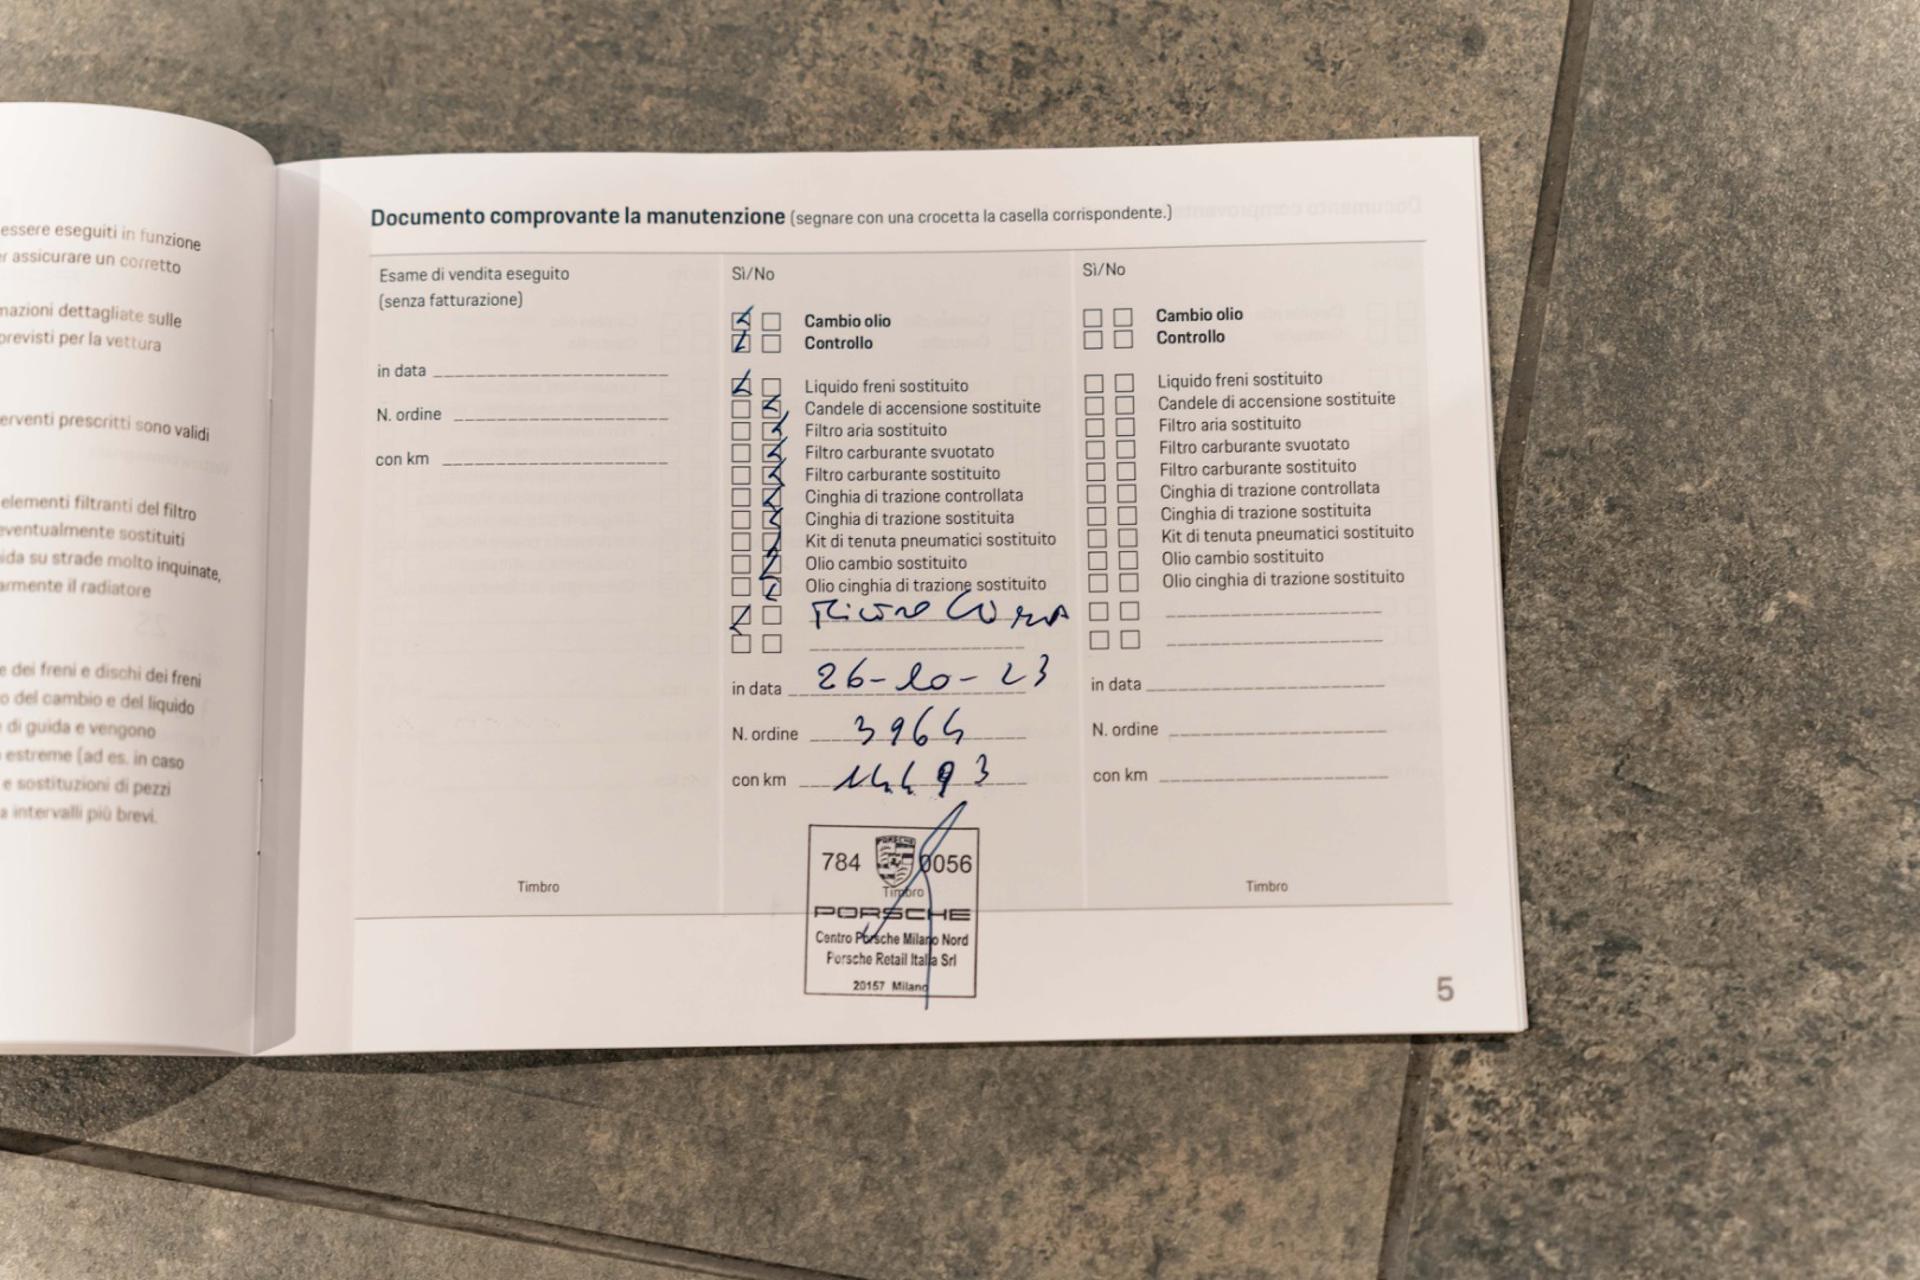 essere eseguiti in funzione
r assicurare un corretto
mazioni dettagliate sulle
previsti per la vettura
erventi prescritti sono validi
elementi filtranti del filtro
eventualmente sostituiti
ida su strade molto inquinate,
armente il radiatore
e dei freni e dischi dei freni
o del cambio e del liquido
di guida e vengono
estreme (ad es. in caso
e sostituzioni di pezzi
a intervalli più brevi.
Documento comprovante la manutenzione (segnare con una crocetta la casella corrispondente.)
Esame di vendita eseguito
(senza fatturazione)
in data
N. ordine
con km
Timbro
Sì/No
Cambio olio
Controllo
Liquido freni sostituito
Candele di accensione sostituite
Filtro aria sostituito
Filtro carburante svuotato
Filtro carburante sostituito
Cinghia di trazione controllata
Cinghia di trazione sostituita
Kit di tenuta pneumatici sostituito
Olio cambio sostituito
Olio cinghia di trazione sostituito
in data 26-10-23
N. ordine 3964
con km 14493
784 0056
Timbro
PORSCHE
Centro Porsche Milano Nord
Porsche Retail Italia Srl
20157 Milano
Sì/No
Cambio olio
Controllo
Liquido freni sostituito
Candele di accensione sostituite
Filtro aria sostituito
Filtro carburante svuotato
Filtro carburante sostituito
Cinghia di trazione controllata
Cinghia di trazione sostituita
Kit di tenuta pneumatici sostituito
Olio cambio sostituito
Olio cinghia di trazione sostituito
in data
N. ordine
con km
Timbro
5